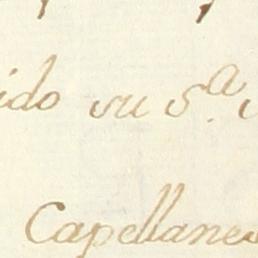 ido su S.ª
Capellanes